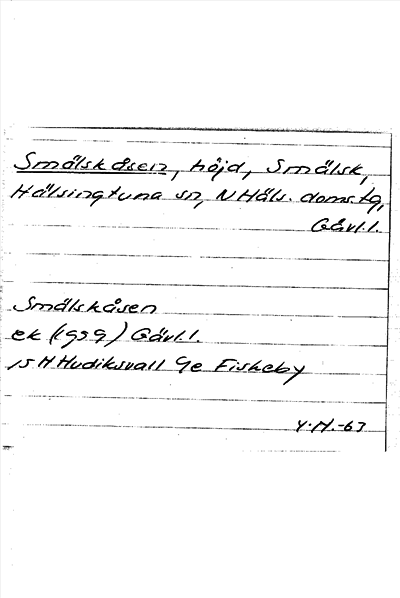 Smälskåsen, höjd, Smälsk,
Hälsingtuna sn, N Häls. domstg,
Gävl.l.
Smälskåsen
ek (1959) Gävl.l.
15 H Hudiksvall 9e Fiskeby
Y.H.-63